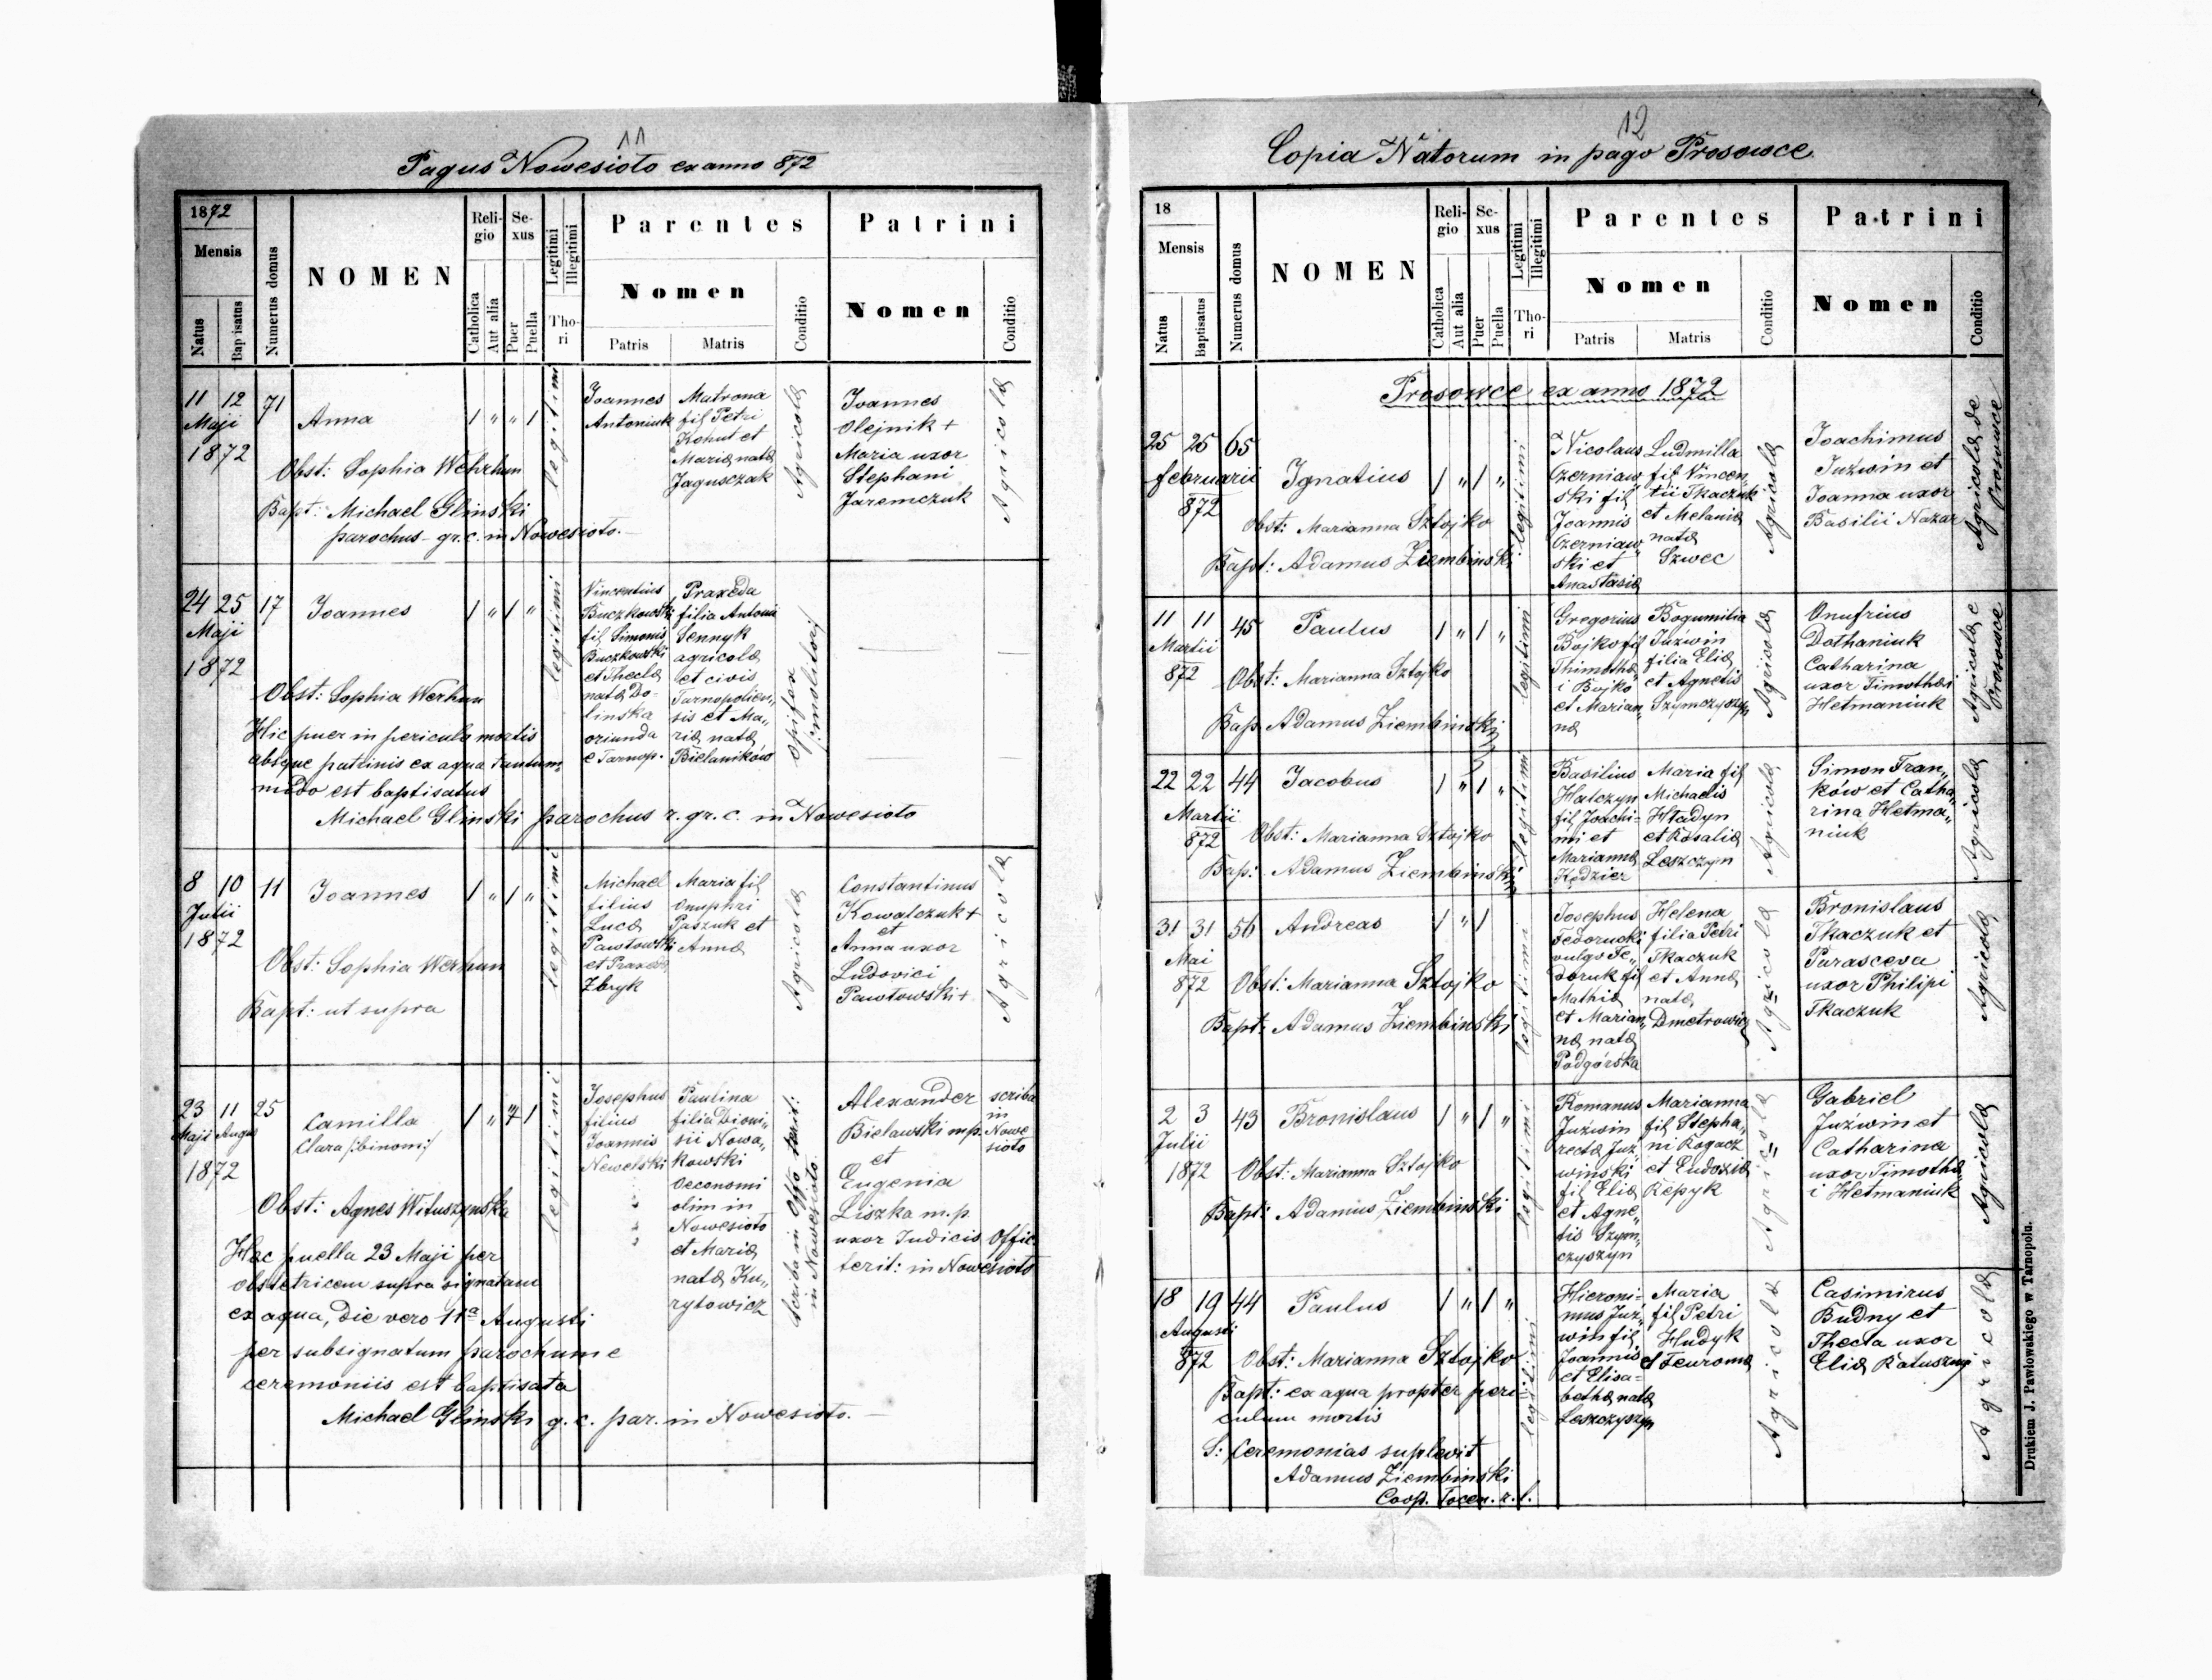 11
Pagus Nowesioło ex anno 872
1872
Mensis
Natus
Bap isatus
Numerus domus
NOMEN
Reli-
gio
Catholica
Aut alia
Se-
xus
Puer
Puella
Legitimi
Illegitimi
Tho-
ri
Parentes
Nomen
Patris
Matris
Conditio
Patrini
Nomen
Conditio
11 12
Maji
1872
71
Anna
1 " " 1
legitimi
Obst: Sophia Wehrhun
Bapt: Michael Glinski
parochus gr. c. in Nowesioło.
Joannes
Antoniuk
Matrona
fil Petri
Kohut et
Mariæ natæ
Jagusczak
Agricolæ
Joannes
Olejnik +
Maria uxor
Stephani
Jaremczuk
Agricolæ
24 25
Maji
1872
17
Joannes
1 " 1 "
legitimi
Obst: Sophia Werhun
Hic puer in periculo mortis
absque patrinis ex aqua tantum„
modo est baptisatus
Michael Glinski parochus r. gr. c. in Nowesioło
Vincentius
Buczkowski
fil Simonis
Buczkowski
et Theclæ
natæ Do-
linska
oriunda
e Tarnop.
Praxeda
filia Antonii
Sennyk
agricolæ
et civis
Tarnopolien„
sis et Ma„
riæ natæ
Bielaników
opifex
molitorj
8 10
Julii
1872
11
Joannes
1 " 1 "
legitimi
Obst: Sophia Werhun
Bapt: ut supra
Michael
filius
Lucæ
Pawłowski
et Praxedæ
Zbryk
Maria fil
Onuphri
Paszuk et
Annæ
Agricolæ
Constantinus
Kowalczuk +
et
Anna uxor
Ludovici
Pawłowski +
Agricolæ
23 11
Maji Augus
1872
25
Camilla
Clara /:binomi:/
1 " 1
legitimi
Obst: Agnes Wituszynska
Hæc puella 23 Maji per
obstetricem supra signatam
ex aqua, die vero 11ª Augusti
per subsignatum parochum c
ceremoniis est baptisata
Michael Glinski g. c. par. in Nowesioło.
Josephus
filius
Joannis
Newelski
Paulina
filia Dioni„
sii Nowa„
kowski
Oeconomi
olim in
Nowesioło
et Mariæ
natæ Ku„
ryłowicz
Scriba in Offo terit:
in Nowesioło
Alexander
Bielawski mp.
et
Eugenia
Liszka m.p
uxor Judicis Offic
terit: in Nowesioło
scriba
in
Nowe
sioło
12
Copia Natorum in pago Prosowce
18
Mensis
Natus
Baptisatus
Numerus domus
NOMEN
Reli-
gio
Catholica
Aut alia
Se-
xus
Puer
Puella
Legitimi
Illegitimi
Tho-
ri
Parentes
Nomen
Patris
Matris
Conditio
Patrini
Nomen
Conditio
Prosowce ex anno 1872
25 25
februarii
872
65
Ignatius
1 " 1 "
legitimi
Obst: Marianna Sztojko
Bapt: Adamus Ziembinski
Nicolaus
Czerniaw„
ski fil
Joannis
Czerniaw„
ski et
Anastasiæ
Ludmilla
fil Vincen„
tii Tkaczuk
et Melaniæ
natæ
Szwec
Agricolæ
Joachimus
Juźwin et
Joanna uxor
Basilii Nazar
Agricolæ de
Prosowce
11 11
Martii
872
45
Paulus
1 " 1 "
legitimi
Obst: Marianna Sztojko
Bap. Adamus Ziembinski
Gregorius
Bojko fil
Thimothæ
i Bojko
et Marian„
næ
Bogumilia
Juźwin
filia Eliæ
et Agnetis
Szymczyszyn
Agricolæ
Onufrius
Dothaniuk
Catharina
uxor Timothæi
Hetmaniuk
Agricolæ e
Prosowce
22 22
Martii
872
44
Jacobus
1 " 1 "
legitimi
Obst: Marianna Sztojko
Bap: Adamus Ziembinski
Basilius
Halczyn
fil Joachi-
mi et
Mariannæ
Kędzier
Maria fil
Michaelis
Hładyn
et Rosaliæ
Leszczyn
Agricolæ
Simon Fran„
ków et Catha„
rina Hetma„
niuk
Agricolæ
31 31
Mai
872
56
Andreas
1 " 1
legitimi
Obst: Marianna Sztojko
Bapt: Adamus Ziembinski
Josephus
Fedorucki
vulgo Fe„
doruk fil
Mathiæ
et Marian„
næ natæ
Podgórska
Helena
filia Petri
Tkaczuk
et Annæ
natæ
Dmetrowicz
Agricolæ
Bronislaus
Tkaczuk et
Parasceva
uxor Philipi
Tkaczuk
Agricolæ
2 3
Julii
1872
43
Bronislaus
1 " 1 "
legitimi
Obst: Marianna Sztojko
Bapt: Adamus Ziembinski
Romanus
Juźwin
recte Juź„
wiński
fil Eliæ
et Agne„
tis Szym„
czyszyn
Marianna
fil Stepha„
ni Rogacz
et Eudoxiæ
Repyk
Agricolæ
Gabriel
Juźwin et
Catharina
uxor Timothæ
i Hetmaniuk
Agricolæ
18 19
Augusti
872
44
Paulus
1 " 1 "
legitimi
Obst: Marianna Sztojko
Bapt: ex aqua propter peri-
culum mortis
S: Ceremonias suplevit
Adamus Ziembinski
Coop. Tocen. r. l.
Hieroni-
mus Juź„
win fil
Joannis
et Elisa-
bethæ natæ
Leszczyszyn
Maria
fil Petri
Hudyk
et Feuronæ
Agricolæ
Casimirus
Budny et
Thecla uxor
Eliæ Ratuszny
Agricolæ
Drukiem J. Pawłowskiego w Tarnopolu.